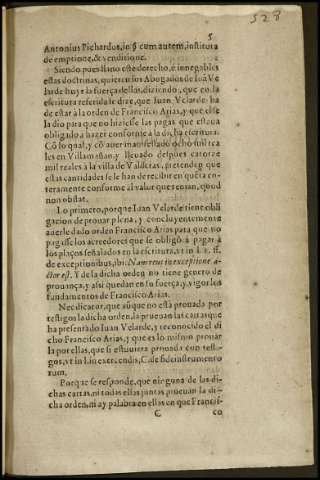 5
528
Antonius Pichardus, in §. cum autem, institura
de emptione, & venditione.
Siendo pues llano este derecho, è innegables
estas doctrinas, quieren los Abogados de Iuã Ve
larde huyr la fuerça dellas, diziendo, que en la
escritura referida se dize, que Iuan Velarde ha
de estar à la orden de Francisco Arias, y que esse
la dio para que no hiziesse las pagas que estaua
obligado a hazer conforme a la dicha escritura.
Cõ lo qual, y cõ auer manifestado ocho mil rea
les en Villamañan, y lleuado despues catorze
mil reales a la villa de Valderas, pretende que
estas cantidades se le han de recibir en quẽta en-
teramente conforme al valor que tenian, quod
non obstat.
Lo primero, porque Iuan Velarde tiene obli
gacion de prouar, y concluyentemente
auerle dado orden Francisco Arias para que no
pagasse los acreedores que se obligò à pagar à
los plaços señalados en la escritura, vt in l. 1. ff.
de exceptionibus, ibi: Nam reus in exceptione a-
ctor est. Y de la dicha orden no tiene genero de
prouança, y assi quedan en su fuerça, y vigor los
fundamentos de Francisco Arias.
Nec dicatur, que aũque no està prouada por
testigos la dicha orden, la prueuan las cartas que
ha presentado Iuan Velarde, y reconocido el di
cho Francisco Arias, y que es lo mismo prouar
la por ellas, que si estuuiera prouada con testi-
gos, vt in l. in exercendis, C. de fide instrumento
rum.
Porque se responde, que ninguna de las di-
chas cartas, ni todas ellas juntas, prueuan la di-
cha orden, ni ay palabra en ellas en que Francis-
C co